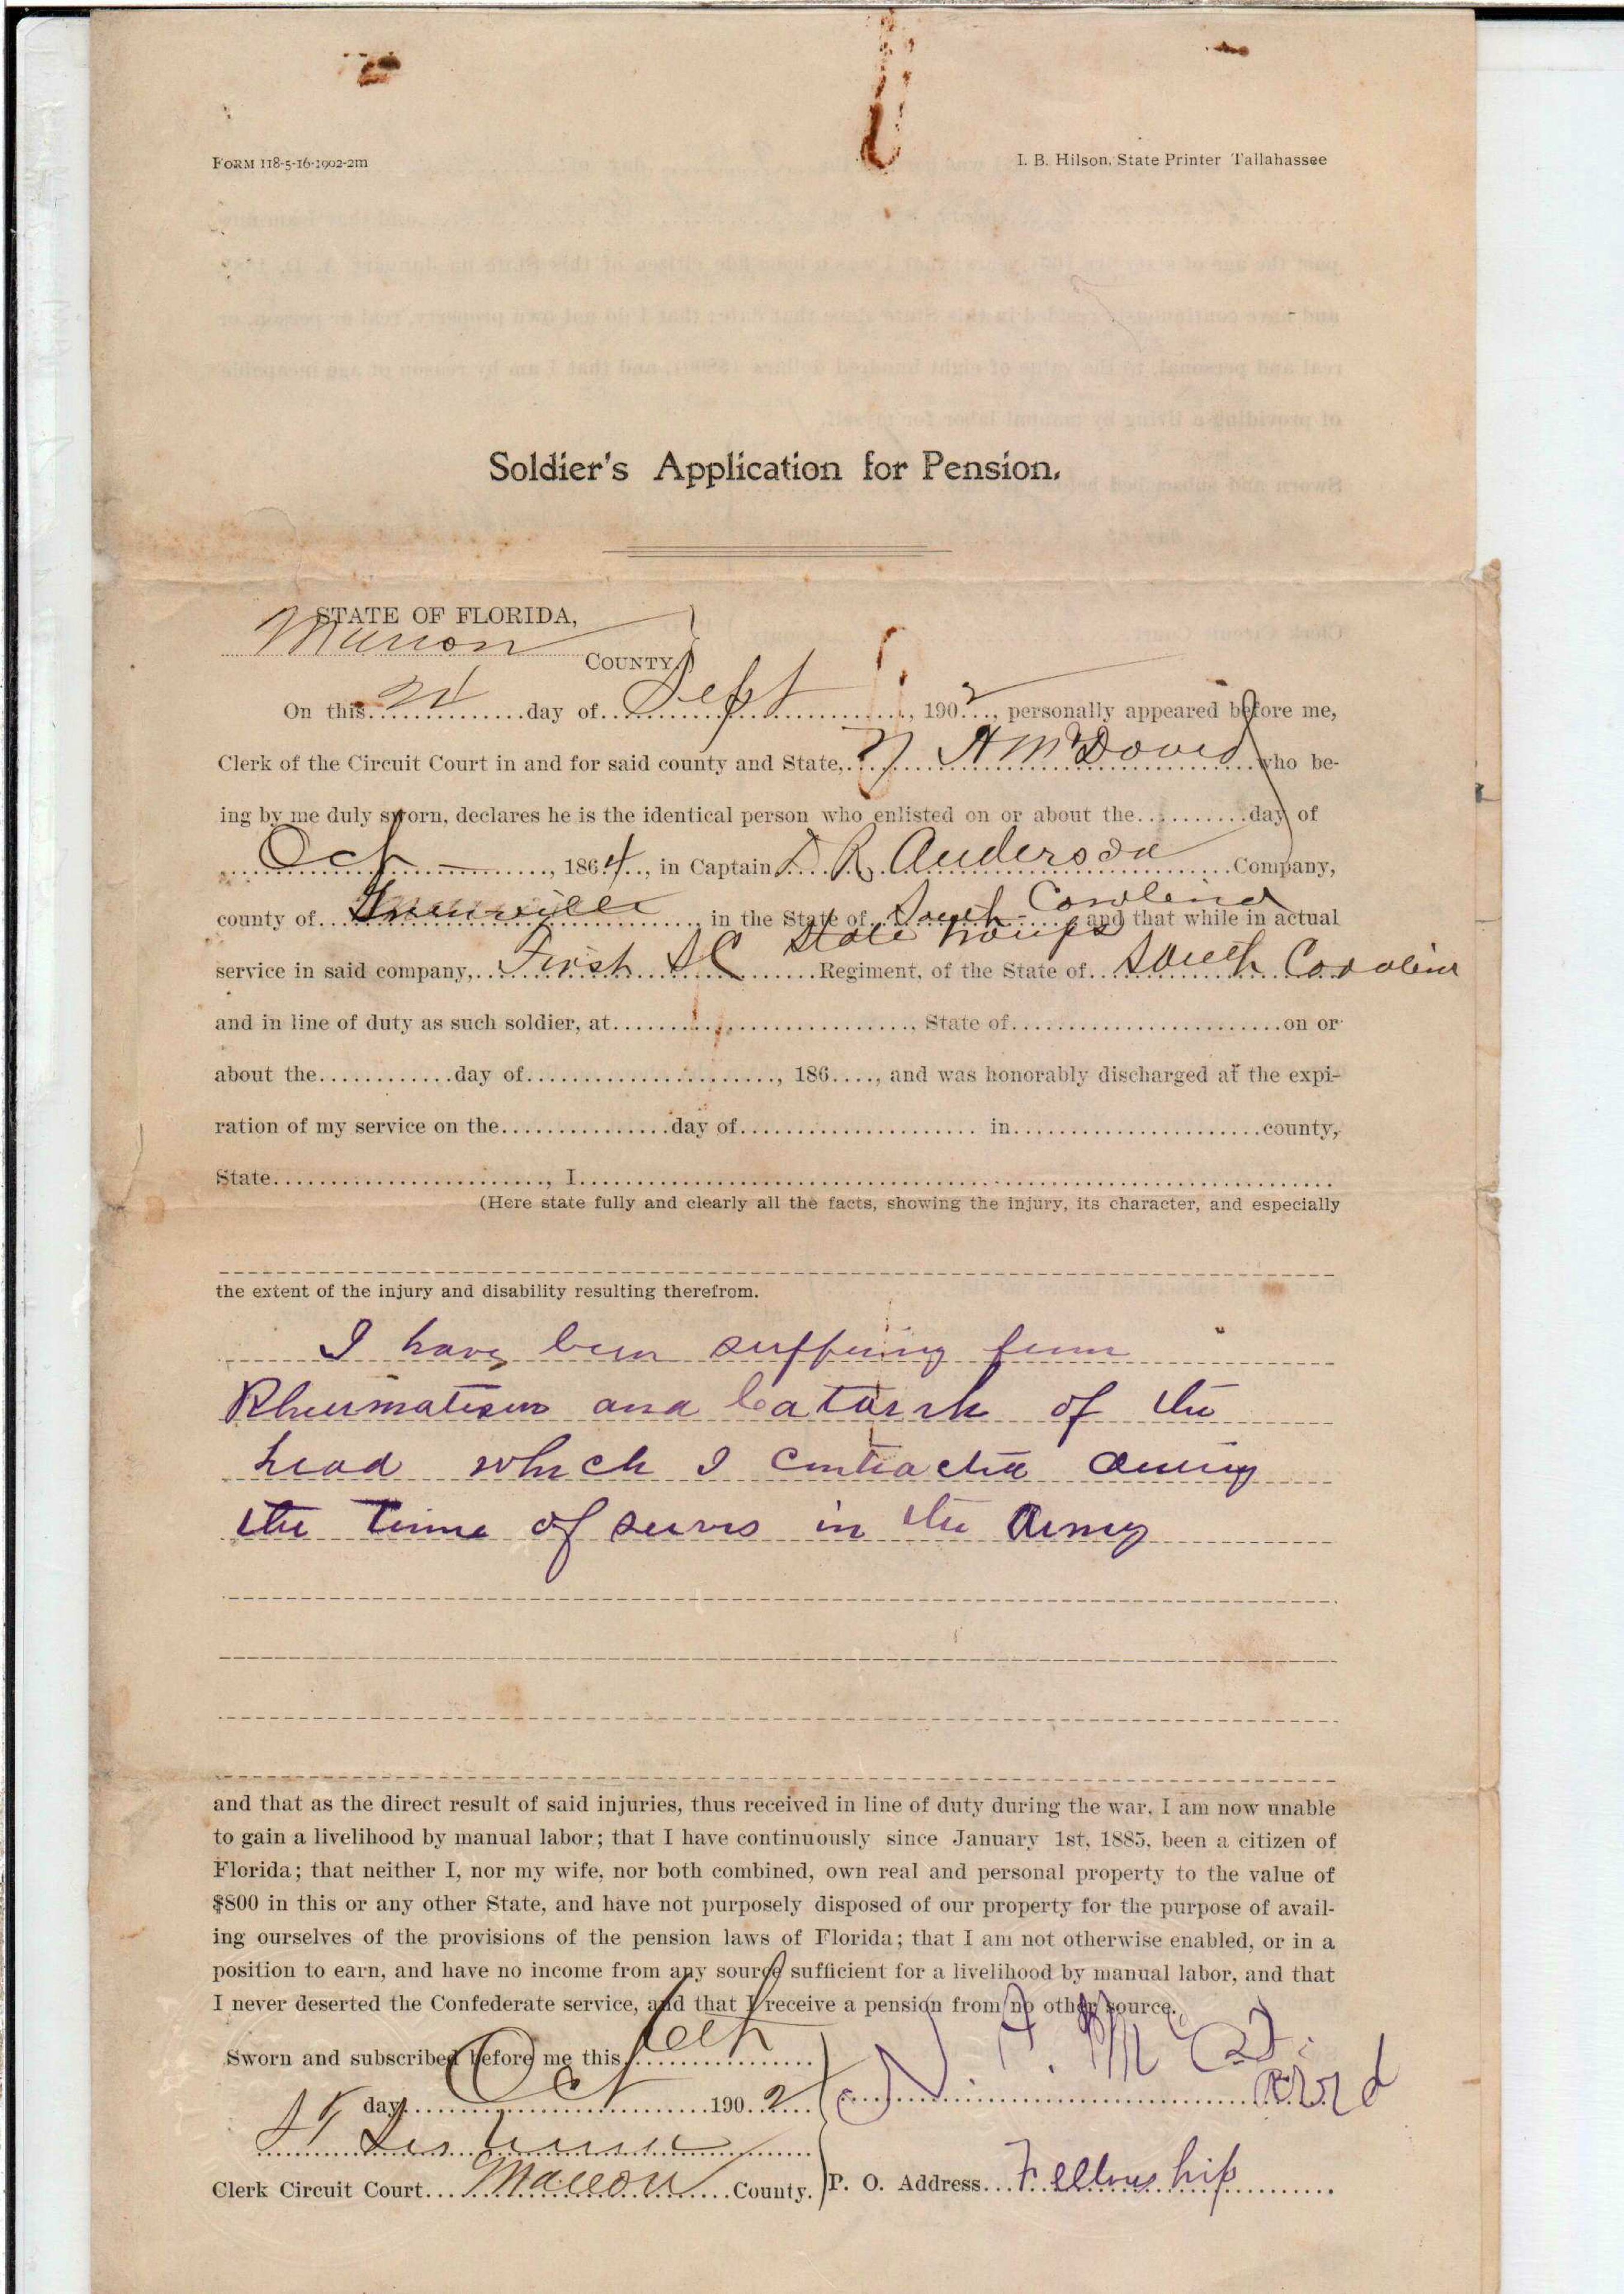 FORM 118-5-16-1902-2m
I. B. Hilson, State Printer Tallahassee
Soldier's Application for Pension.
STATE OF FLORIDA,
Marion COUNTY.
On this day of Sept, 1902, personally appeared before me,
Clerk of the Circuit Court in and for said county and State, A McDavid who be-
ing by me duly sworn, declares he is the identical person who enlisted on or about the day of
Oct, 1864, in Captain D R Anderson Company,
county of Greenville, in the State of South Carolina and that while in actual
State Troups
service in said company, First S C Regiment, of the State of South Carolina
and in line of duty as such soldier, at, State of on or
about the day of, 186, and was honorably discharged at the expi-
ration of my service on the day of in county,
State, I
(Here state fully and clearly all the facts, showing the injury, its character, and especially
the extent of the injury and disability resulting therefrom.
I have been suffering from
Rheumatism and Catarrh of the
head which I contracted during
the time of servis in the Army
and that as the direct result of said injuries, thus received in line of duty during the war, I am now unable
to gain a livelihood by manual labor; that I have continuously since January 1st, 1885, been a citizen of
Florida; that neither I, nor my wife, nor both combined, own real and personal property to the value of
$800 in this or any other State, and have not purposely disposed of our property for the purpose of avail-
ing ourselves of the provisions of the pension laws of Florida; that I am not otherwise enabled, or in a
position to earn, and have no income from any source sufficient for a livelihood by manual labor, and that
I never deserted the Confederate service, and that I receive a pension from no other source.
Sworn and subscribed before me this
day Oct 1902
Clerk Circuit Court Marion County.
P. O. Address Fellowship